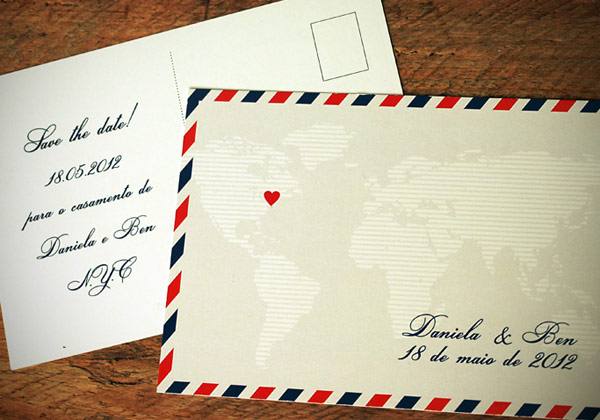 Save the date!
18.05.2012
para o casamento de
Daniela e Ben
N.Y.C
Daniela & Ben
18 de maio de 2012